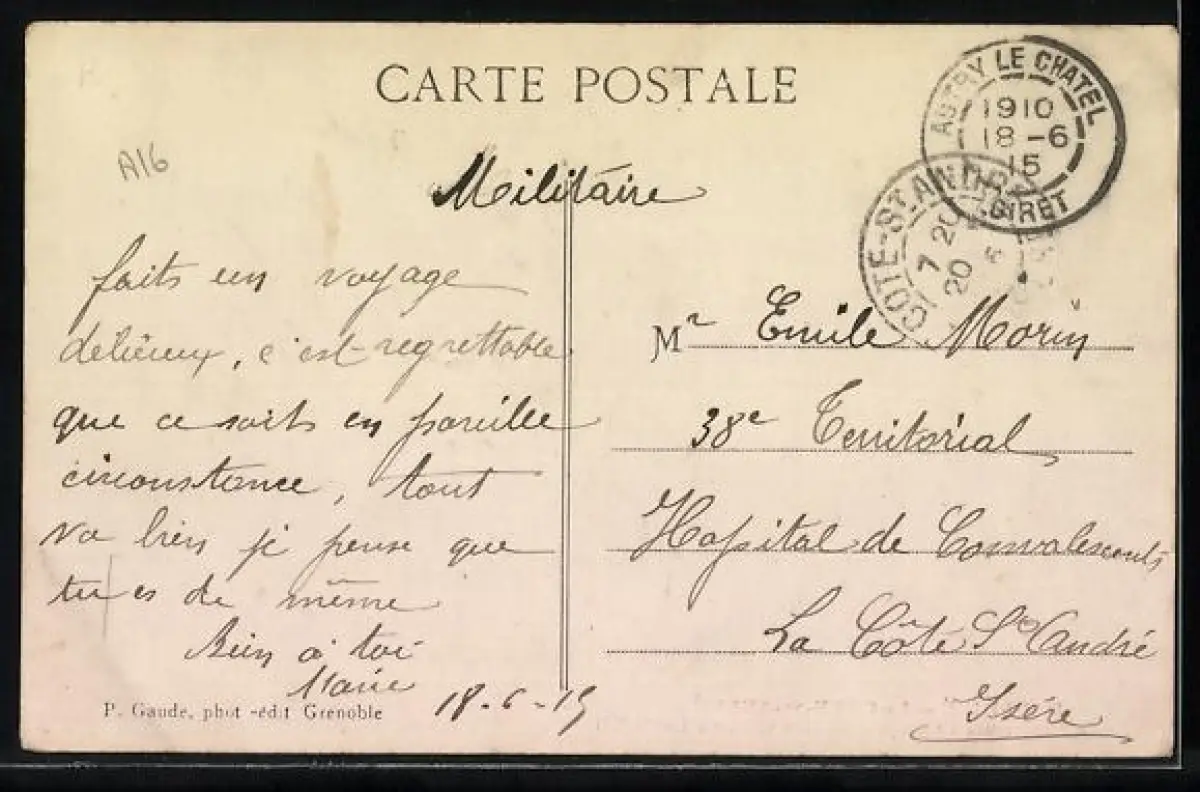 CARTE POSTALE
A16
Militaire
AUTRY LE CHATEL
1910
18-6
15
LOIRET
COTE-ST-ANDRE
7 20
20 6
faits un voyage
délicieux, c'est regrettable
que ce soit en pareille
circonstance, tout
va bien je pense que
tu es de même
Bien à toi
Marie
18-6-15
Mr Emile Morin
38e Territorial
Hopital de Convalescents
La Côte St André
Isère
P. Gaude, phot-édit Grenoble